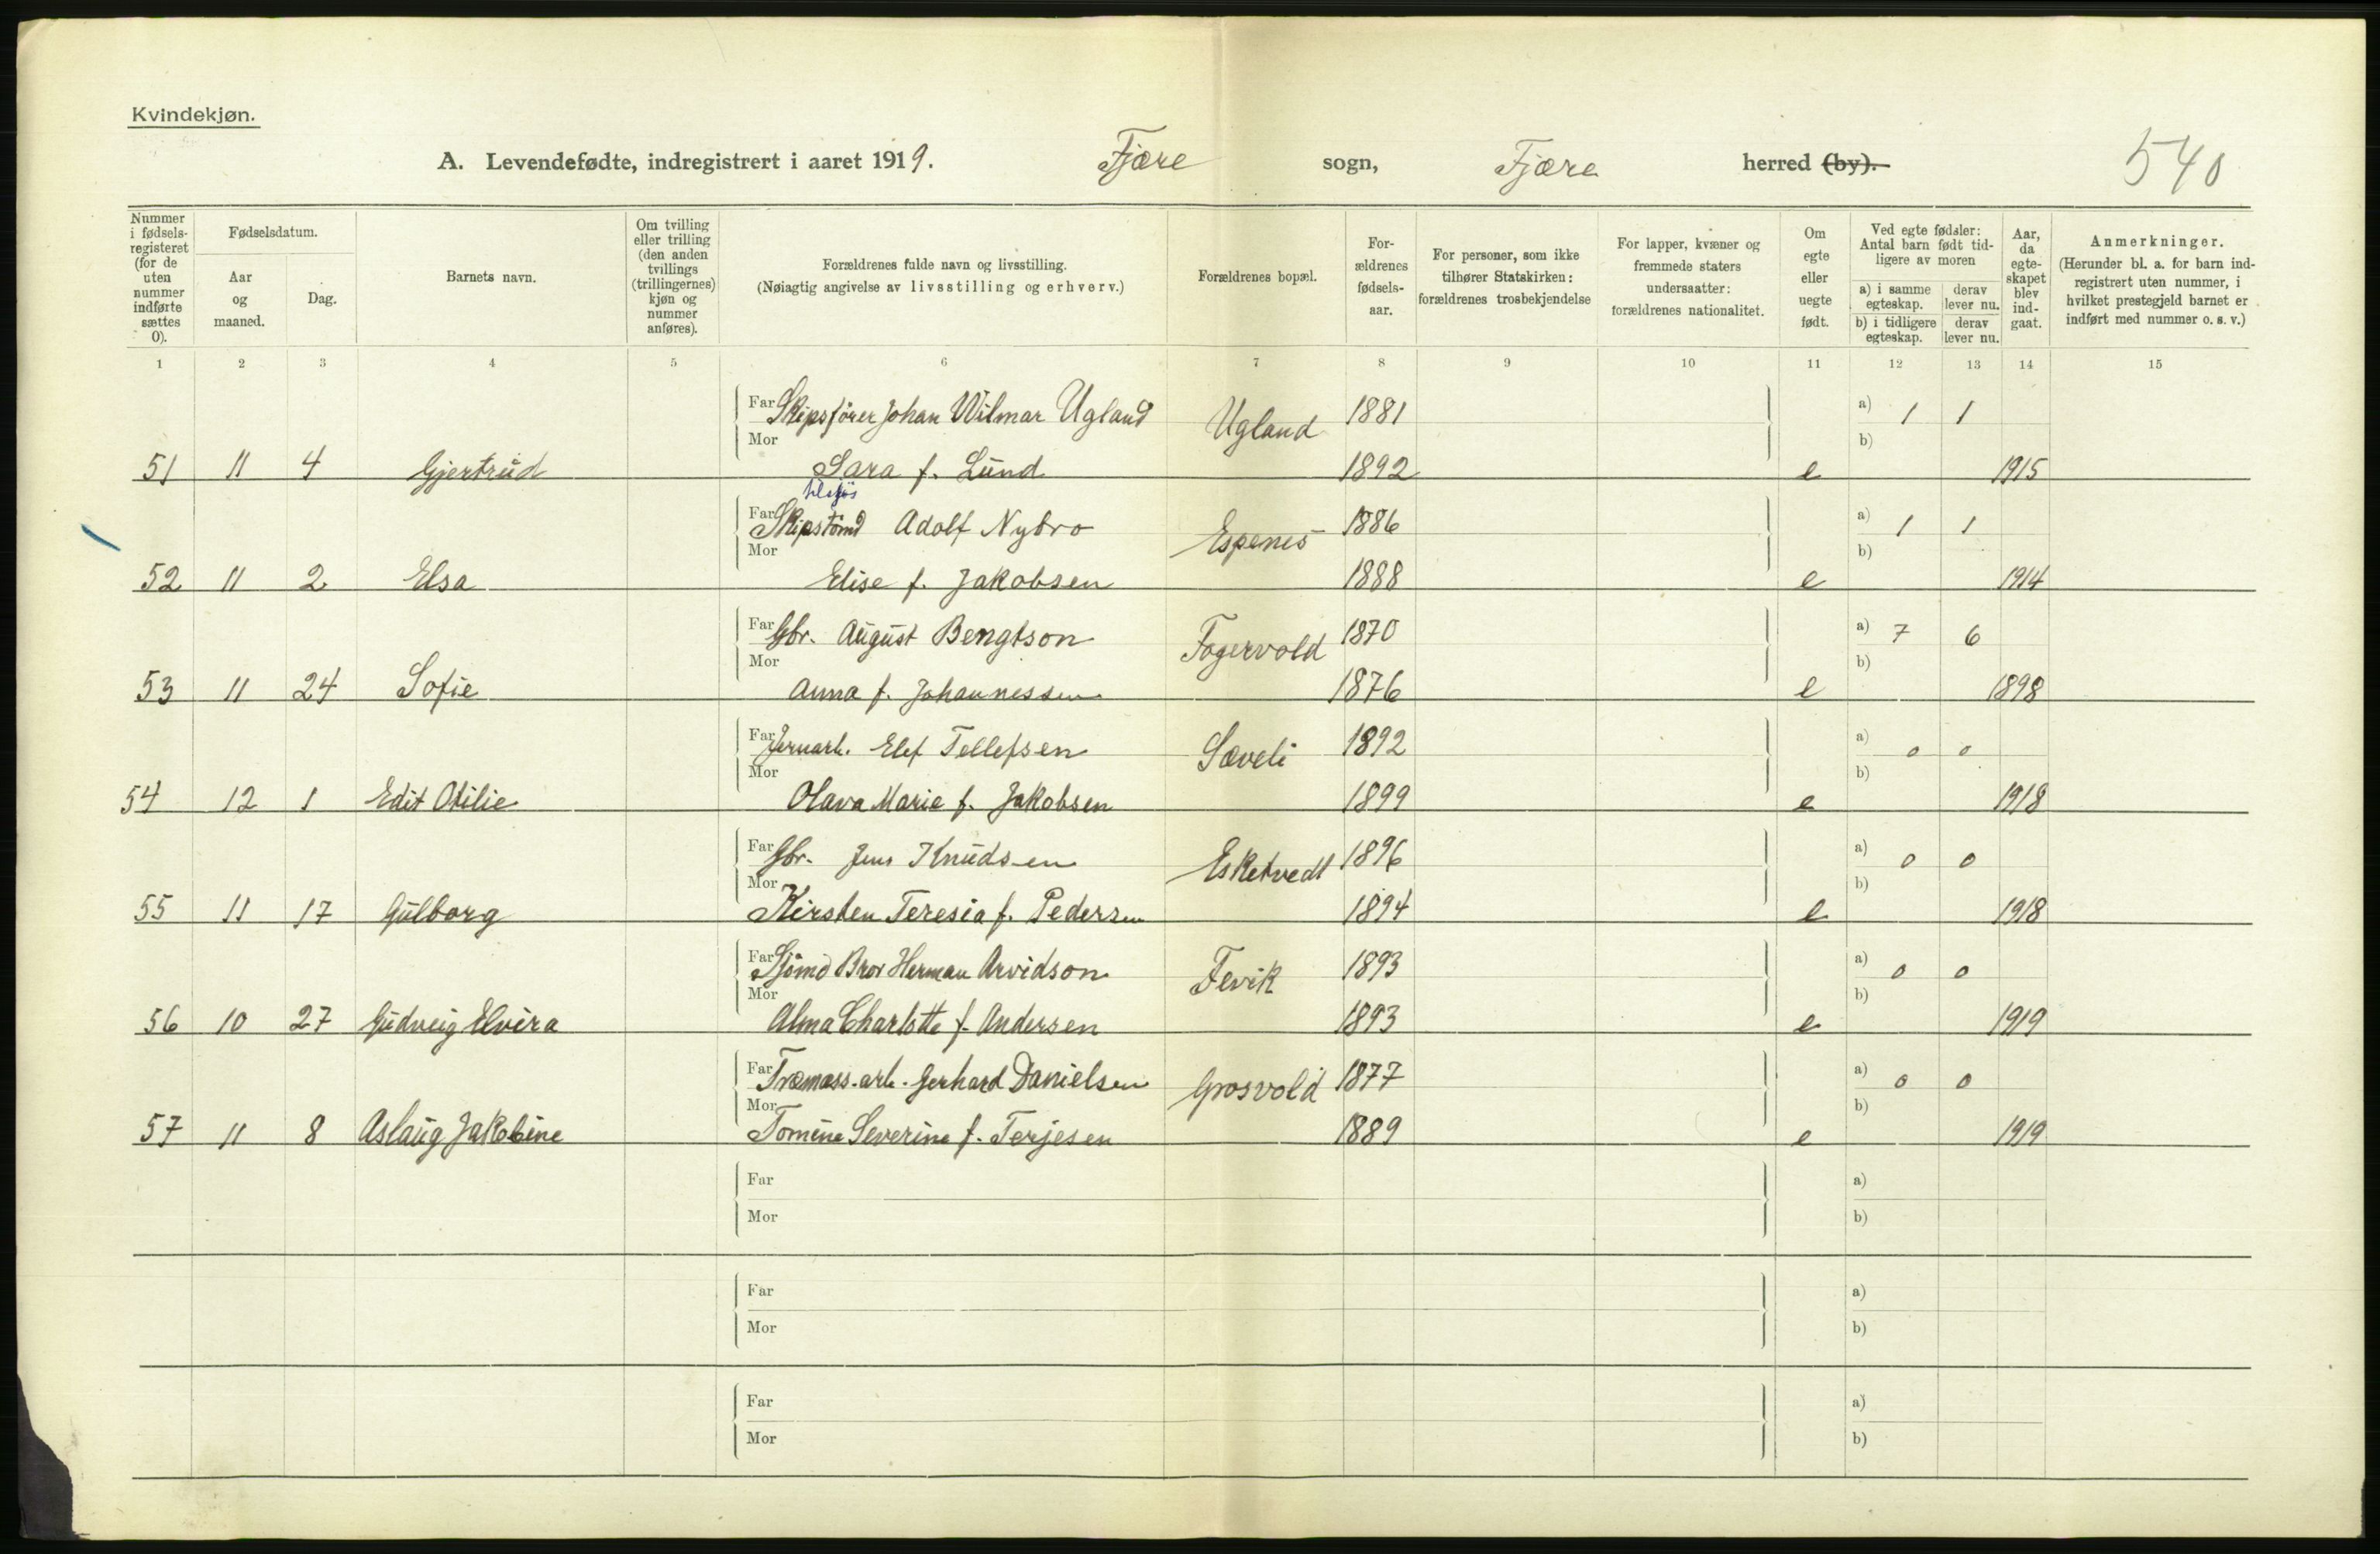 Kvindekjøn.
A. Levendefødte, indregistrert i aaret 1919. Fjære sogn, Fjære herred (by). 540
Nummer i fødselsregisteret (for de uten nummer indførte sættes 0).
Fødselsdatum.
Aar og maaned.
Dag.
Barnets navn.
Om tvilling eller trilling (den anden tvillings (trillingernes) kjøn og nummer anføres).
Forældrenes fulde navn og livsstilling.
(Nøiagtig angivelse av livsstilling og erhverv.)
Forældrenes bopæl.
Forældrenes fødselsaar.
For personer, som ikke tilhører Statskirken: forældrenes trosbekjendelse
For lapper, kvæner og fremmede staters undersaatter: forældrenes nationalitet.
Om egte eller uegte født.
Ved egte fødsler: Antal barn født tidligere av moren
a) i samme egteskap. derav lever nu.
b) i tidligere egteskap. derav lever nu.
Aar, da egteskapet blev indgaat.
Anmerkninger.
(Herunder bl. a. for barn indregistrert uten nummer, i hvilket prestegjeld barnet er indført med nummer o. s. v.)
1 2 3 4 5 6 7 8 9 10 11 12 13 14 15
Far Skipsfører Johan Wilmar Ugland Ugland 1881 a) 1 1
Mor b)
51 11 4 Gjertrud Sara f. Lund 1892 e 1915
tilsjøs
Far Skipstømd Adolf Nybro Espenes 1886 a) 1 1
Mor b)
52 11 2 Elsa Elise f. Jakobsen 1888 e 1914
Far Gbr. August Bengtson Fagervold 1870 a) 7 6
Mor b)
53 11 24 Sofie Anna f. Johannessen 1876 e 1898
Far Jernarb. Elef Tellefsen Sæveli 1892 a) 0 0
Mor b)
54 12 1 Edit Otilie Olava Marie f. Jakobsen 1899 e 1918
Far Gbr. Jens Knudsen Esketvedt 1896 a) 0 0
Mor b)
55 11 17 Gulborg Kirsten Teresia f. Pedersen 1894 e 1918
Far Sjømd Bror Herman Arvidson Fevik 1893 a) 0 0
Mor b)
56 10 27 Gudveig Elvira Alma Charlotte f. Andersen 1893 e 1919
Far Træmass.arb. Gerhard Danielsen Grosvold 1877 a) 0 0
Mor b)
57 11 8 Aslaug Jakobine Tomine Severine f. Terjesen 1889 e 1919
Far a)
Mor b)
Far a)
Mor b)
Far a)
Mor b)